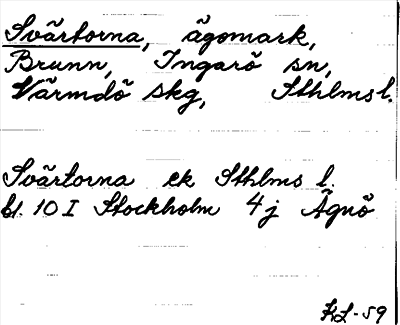 Svärtorna, ägomark,
Brunn, Ingarö sn,
Värmdö skg, Sthlms l.
Svärtorna ek Sthlms l.
bl. 10 I Stockholm 4j Ägnö
KL-59